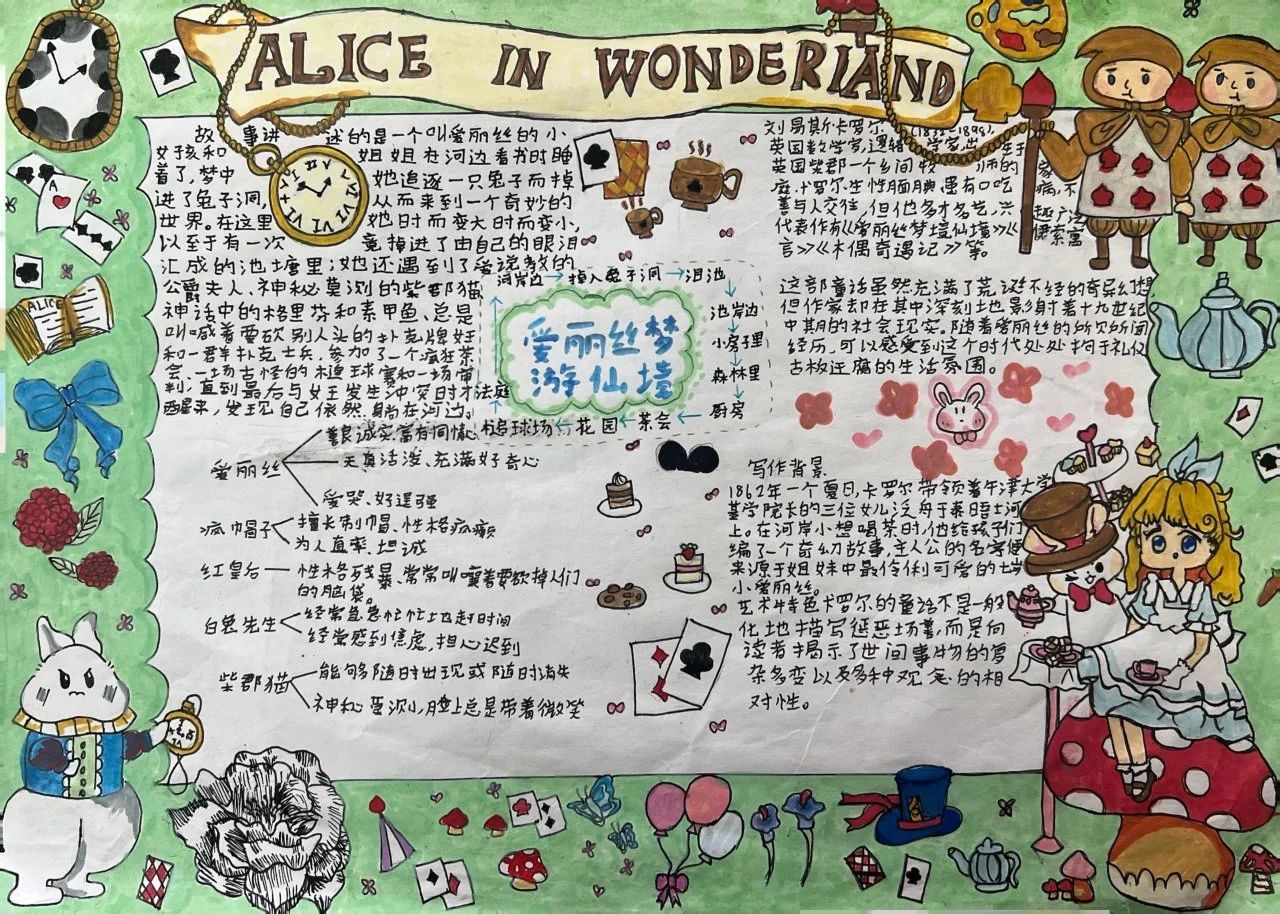 ALICE IN WONDERLAND
故事讲述的是一个叫爱丽丝的小
女孩和姐姐在河边看书时睡
着了,梦中她追逐一只兔子而掉
进了兔子洞,从而来到一个奇妙的
世界。在这里她时而变大时而变小,
以至于有一次竟掉进了由自己的眼泪
汇成的池塘里;她还遇到了爱说教的
公爵夫人、神秘莫测的柴郡猫
神话中的格里芬和素甲鱼、总是
叫喊着要砍别人头的扑克牌女王
和一群扑克士兵,参加了一个疯狂茶
会、一场古怪的槌球赛和一场审
判,直到最后与女王发生冲突时才
醒来,发现自己依然躺在河边。
河岸边→掉入兔子洞→泪池
池岸边
小房子里
森林里
厨房
茶会
花园
槌球场
法庭
爱丽丝梦
游仙境
爱丽丝
善良诚实富有同情心
天真活泼、充满好奇心
爱哭、好逞强
疯帽子
擅长制帽、性格疯癫
为人直率、坦诚
红皇后
性格残暴、常常叫嚷着要砍掉人们
的脑袋。
白兔先生
经常急急忙忙地赶时间
经常感到焦虑,担心迟到
柴郡猫
能够随时出现或随时消失
神秘莫测,脸上总是带着微笑
刘易斯·卡罗尔 (1832-1898),
英国数学家,逻辑学家,出生于
英国柴郡一个乡间牧师的家
庭,卡罗尔生性腼腆,患有口吃病,不
善与人交往,但他多才多艺,兴趣广泛
代表作有《爱丽丝梦境仙境》《伊索寓
言》《木偶奇遇记》等。
这部童话虽然充满了荒诞不经的奇异幻想
但作家却在其中深刻地影射着十九世纪
中期的社会现实。随着爱丽丝的所见所闻
经历,可以感受到这个时代处处拘于礼仪
古板迂腐的生活氛围。
写作背景
1862年一个夏日,卡罗尔带领着牛津大学
基学院院长的三位女儿泛舟于泰晤士河
上。在河岸小想喝茶时,他给孩子们
编了一个奇幻故事,主人公的名字便
来源于姐妹中最伶俐可爱的
小爱丽丝。
艺术特色卡罗尔的童话不是一般
化地描写惩恶扬善,而是向
读者揭示了世间事物的复
杂多变以及多种观念的相
对性。
ALICE
A